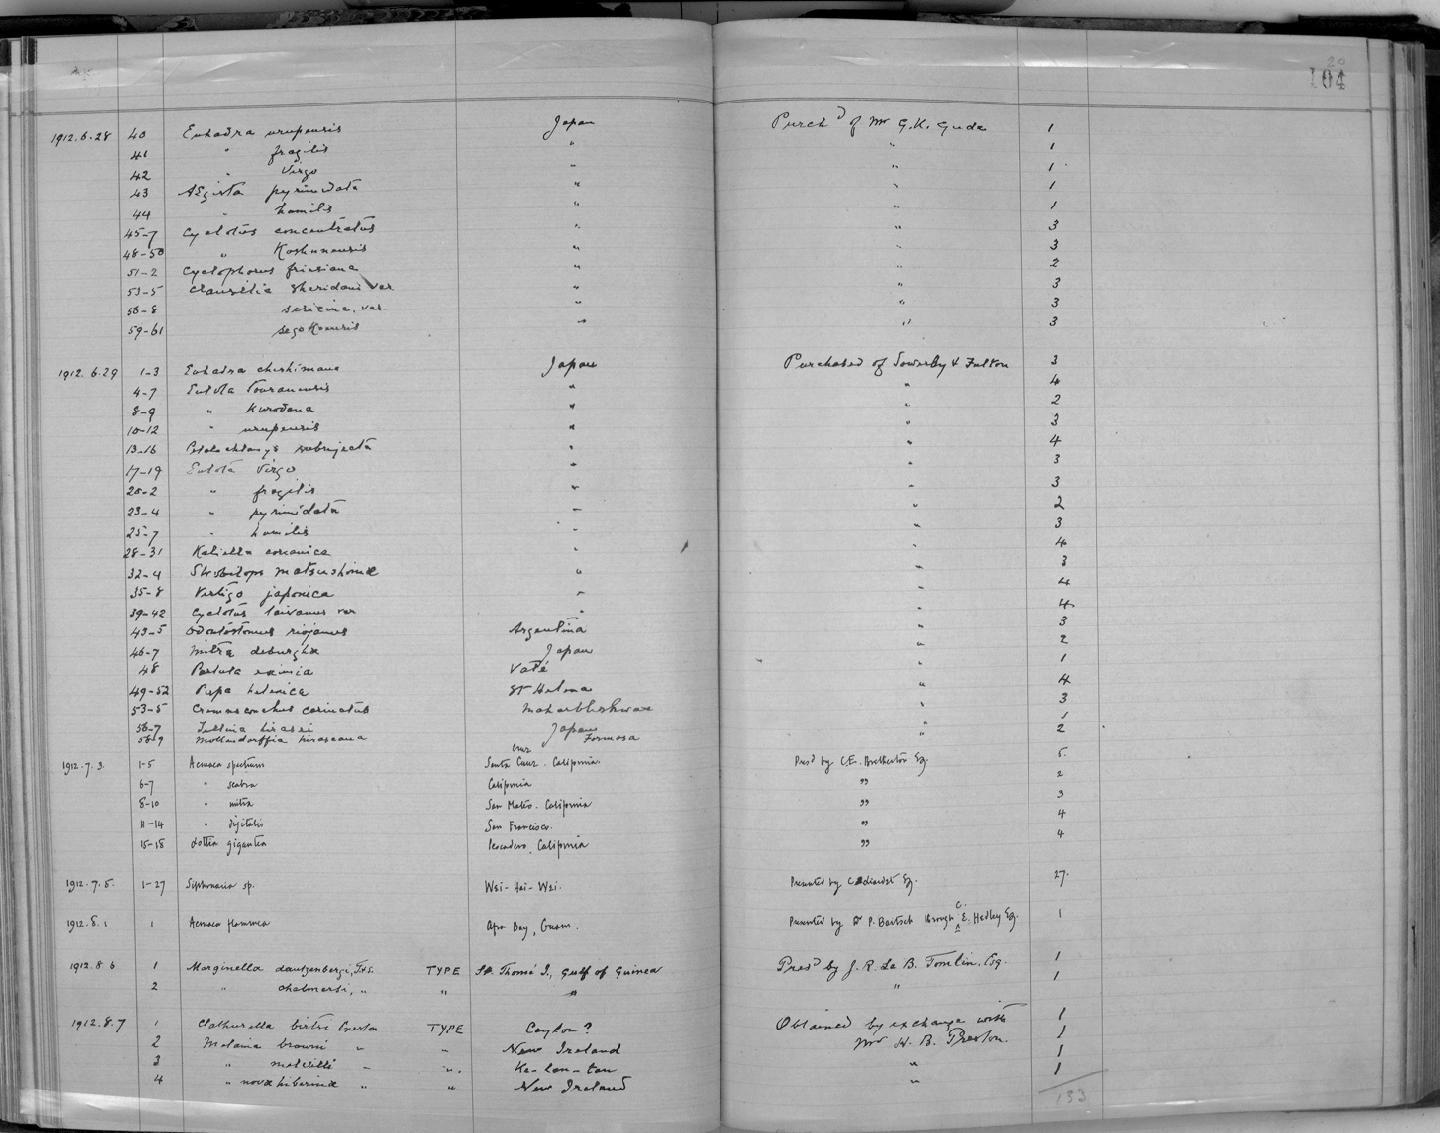 20
104
1912.6.28 40 Euhadra urupensis Japan Purchd of Mr G.K. Gude 1
41 " fragilis " " 1
42 " Virgo " " 1
43 AEgista pyrimidata " " 1
44 " humilis " " 1
45-7 Cyclotus concentratus " " 3
48-50 " Koshunensis " " 3
51-2 Cyclophorus friesiana " " 2
53-5 Clausilia Sheridani var " " 3
56-8 sericina, var " " 3
59-61 " " 3
1912.6.29 1-3 Euhadra chishimana Japan Purchased of Sowerby & Fulton 3
4-7 Eulota " " 4
8-9 " Kurodana " " 2
10-12 " urupensis " " 3
13-16 subinjecta " " 4
17-19 Eulota Virgo " " 3
20-2 " fragilis " " 3
23-4 " pyrimidata " " 2
25-7 " humilis " " 3
28-31 Kaliella coreanica " " 4
32-4 Strobilops matsushimæ " " 3
35-8 Vertigo japonica " " 4
39-42 Cyclotus taivanus var " " 4
43-5 Odontostomus riojanus Argentina " 3
46-7 Mitra deburghiæ Japan " 2
48 Partula eximia Vaté " 1
49-52 Pupa helenica St Helena " 4
53-5 Cremnoconchus carinatus Mahableshwar " 3
56-7 Tellina hirasei Japan " 1
58-9 Mollendorffia hiraseana Formosa " 2
1912.7.3. 1-5 Acmaea spectrum Santa Cruz. California. Presd by C.E. Bretherton Esq. 5.
6-7 " scabra California " 2
8-10 " mitra San Mateo. California " 3
11-14 " digitalis San Francisco. " 4
15-18 Lottia gigantea Pescadero, California " 4
1912.7.5. 1-27 Siphonaria sp. Wei-hai-Wei. Presented by Esq. 27.
1912.8.1 1 Acmaea flammea Apra Bay, Guam. Presented by Dr P. Bartsch through C. E. Hedley Esq. 1
1912.8.6 1 Marginella dautzenbergi, T.&S. TYPE St. Thomé I., Gulf of Guinea Presd by J. R. Le B. Tomlin, Esq. 1
2 " chalmersi, " " " " 1
1912.8.7 1 Clathurella birtsi Preston TYPE Ceylon? Obtained by exchange with 1
2 Melania browni " " New Ireland Mr H. B. Preston. 1
3 " melvilli " " Ke-lan-tan " 1
4 " novæ hiberniæ " " New Ireland " 1
133